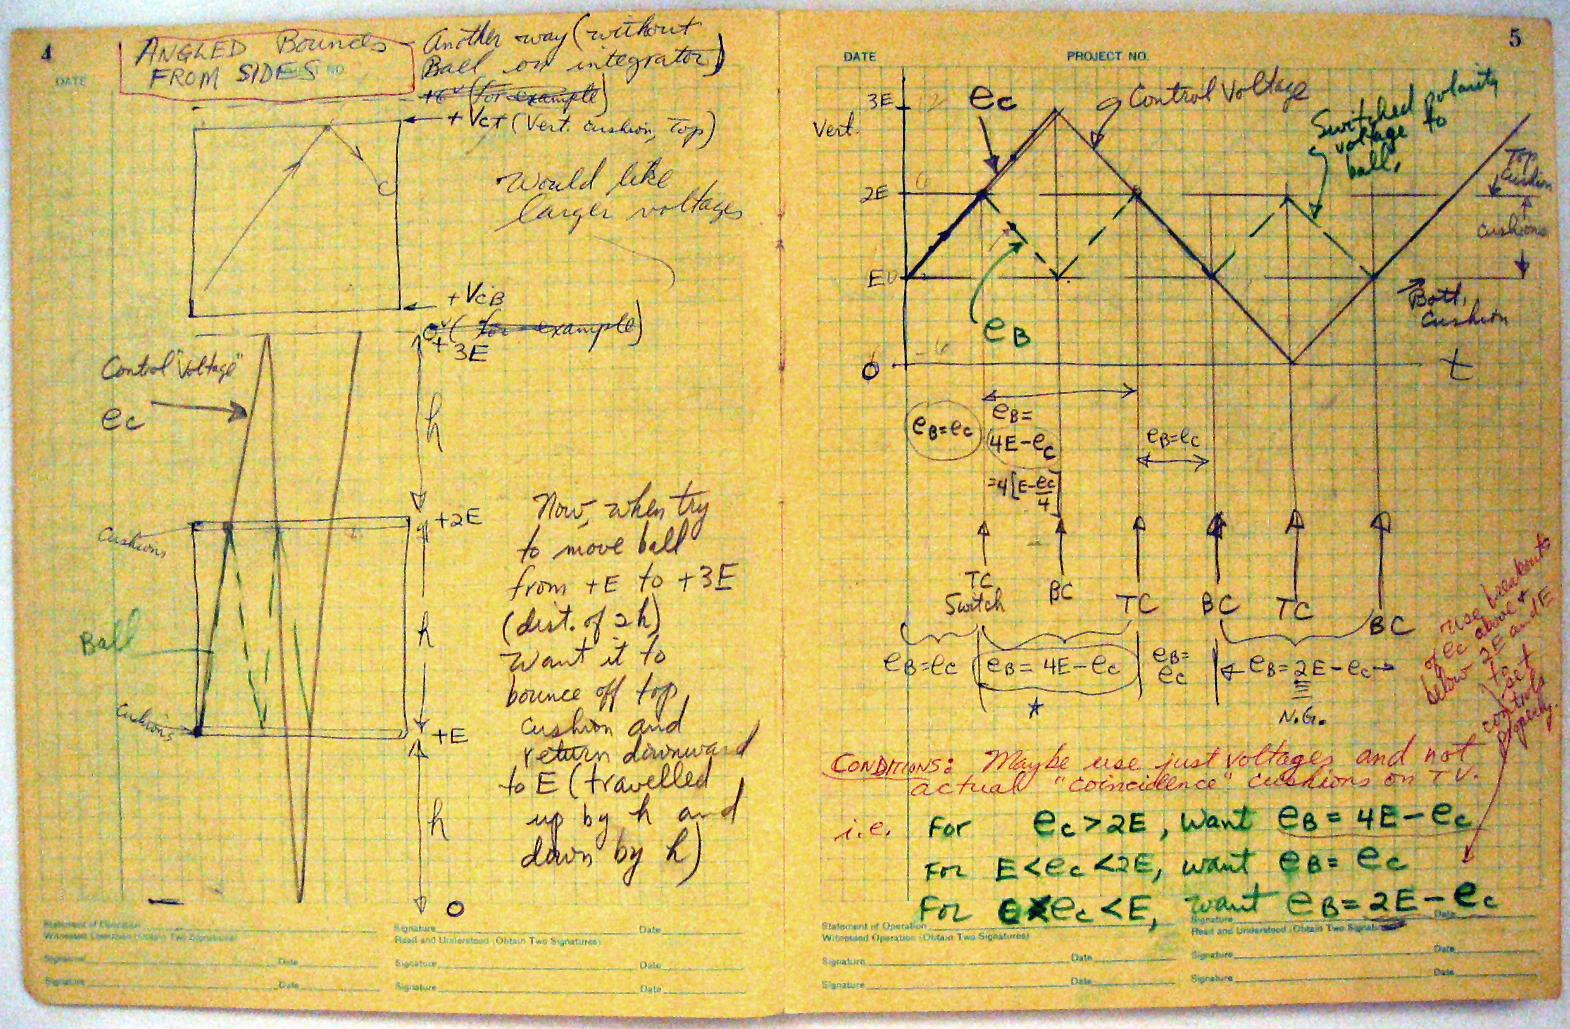 4
DATE
ANGLED Bounces
FROM SIDES
NO.
- Another way (without
Ball on integrator)
+6V (for example)
+ VCT (Vert. cushion, Top)
Would like
larger voltages
+ VCB
0V (for example)
+3E
Control "Voltage"
ec
h
Cushions
+2E
Ball
h
Cushions
+E
h
0
Now, when try
to move ball
from +E to +3E
(dist. of 2h)
want it to
bounce off top
cushion and
return downward
to E (travelled
up by h and
down by h)
Statement of Operation
Witnessed Operation (Obtain Two Signatures)
Signature Date
Signature Date
Signature Date
Read and Understood (Obtain Two Signatures)
Signature Date
Signature Date
5
DATE
PROJECT NO.
3E
Vert.
ec
Control Voltage
Switched polarity
voltage to
ball.
2E
Top
Cushion
Cushions
E
Bott.
Cushion
eB
0
t
eB=ec
eB=
4E-ec
=4[E-ec/4]
eB=ec
TC
Switch
BC
TC
BC
TC
BC
eB=ec
eB= 4E-ec
eB=
ec
eB=2E-ec
N.G.
use breakouts
of ec above +
below 2E and E
to set
controls
properly.
CONDITIONS: Maybe use just voltages and not
actual "coincidence" cushions on TV.
i.e. For ec>2E, want eB= 4E-ec
For E<ec<2E, want eB= ec
For ec<E, want eB= 2E-ec
Statement of Operation
Witnessed Operation (Obtain Two Signatures)
Signature Date
Signature Date
Signature Date
Read and Understood (Obtain Two Signatures)
Signature Date
Signature Date